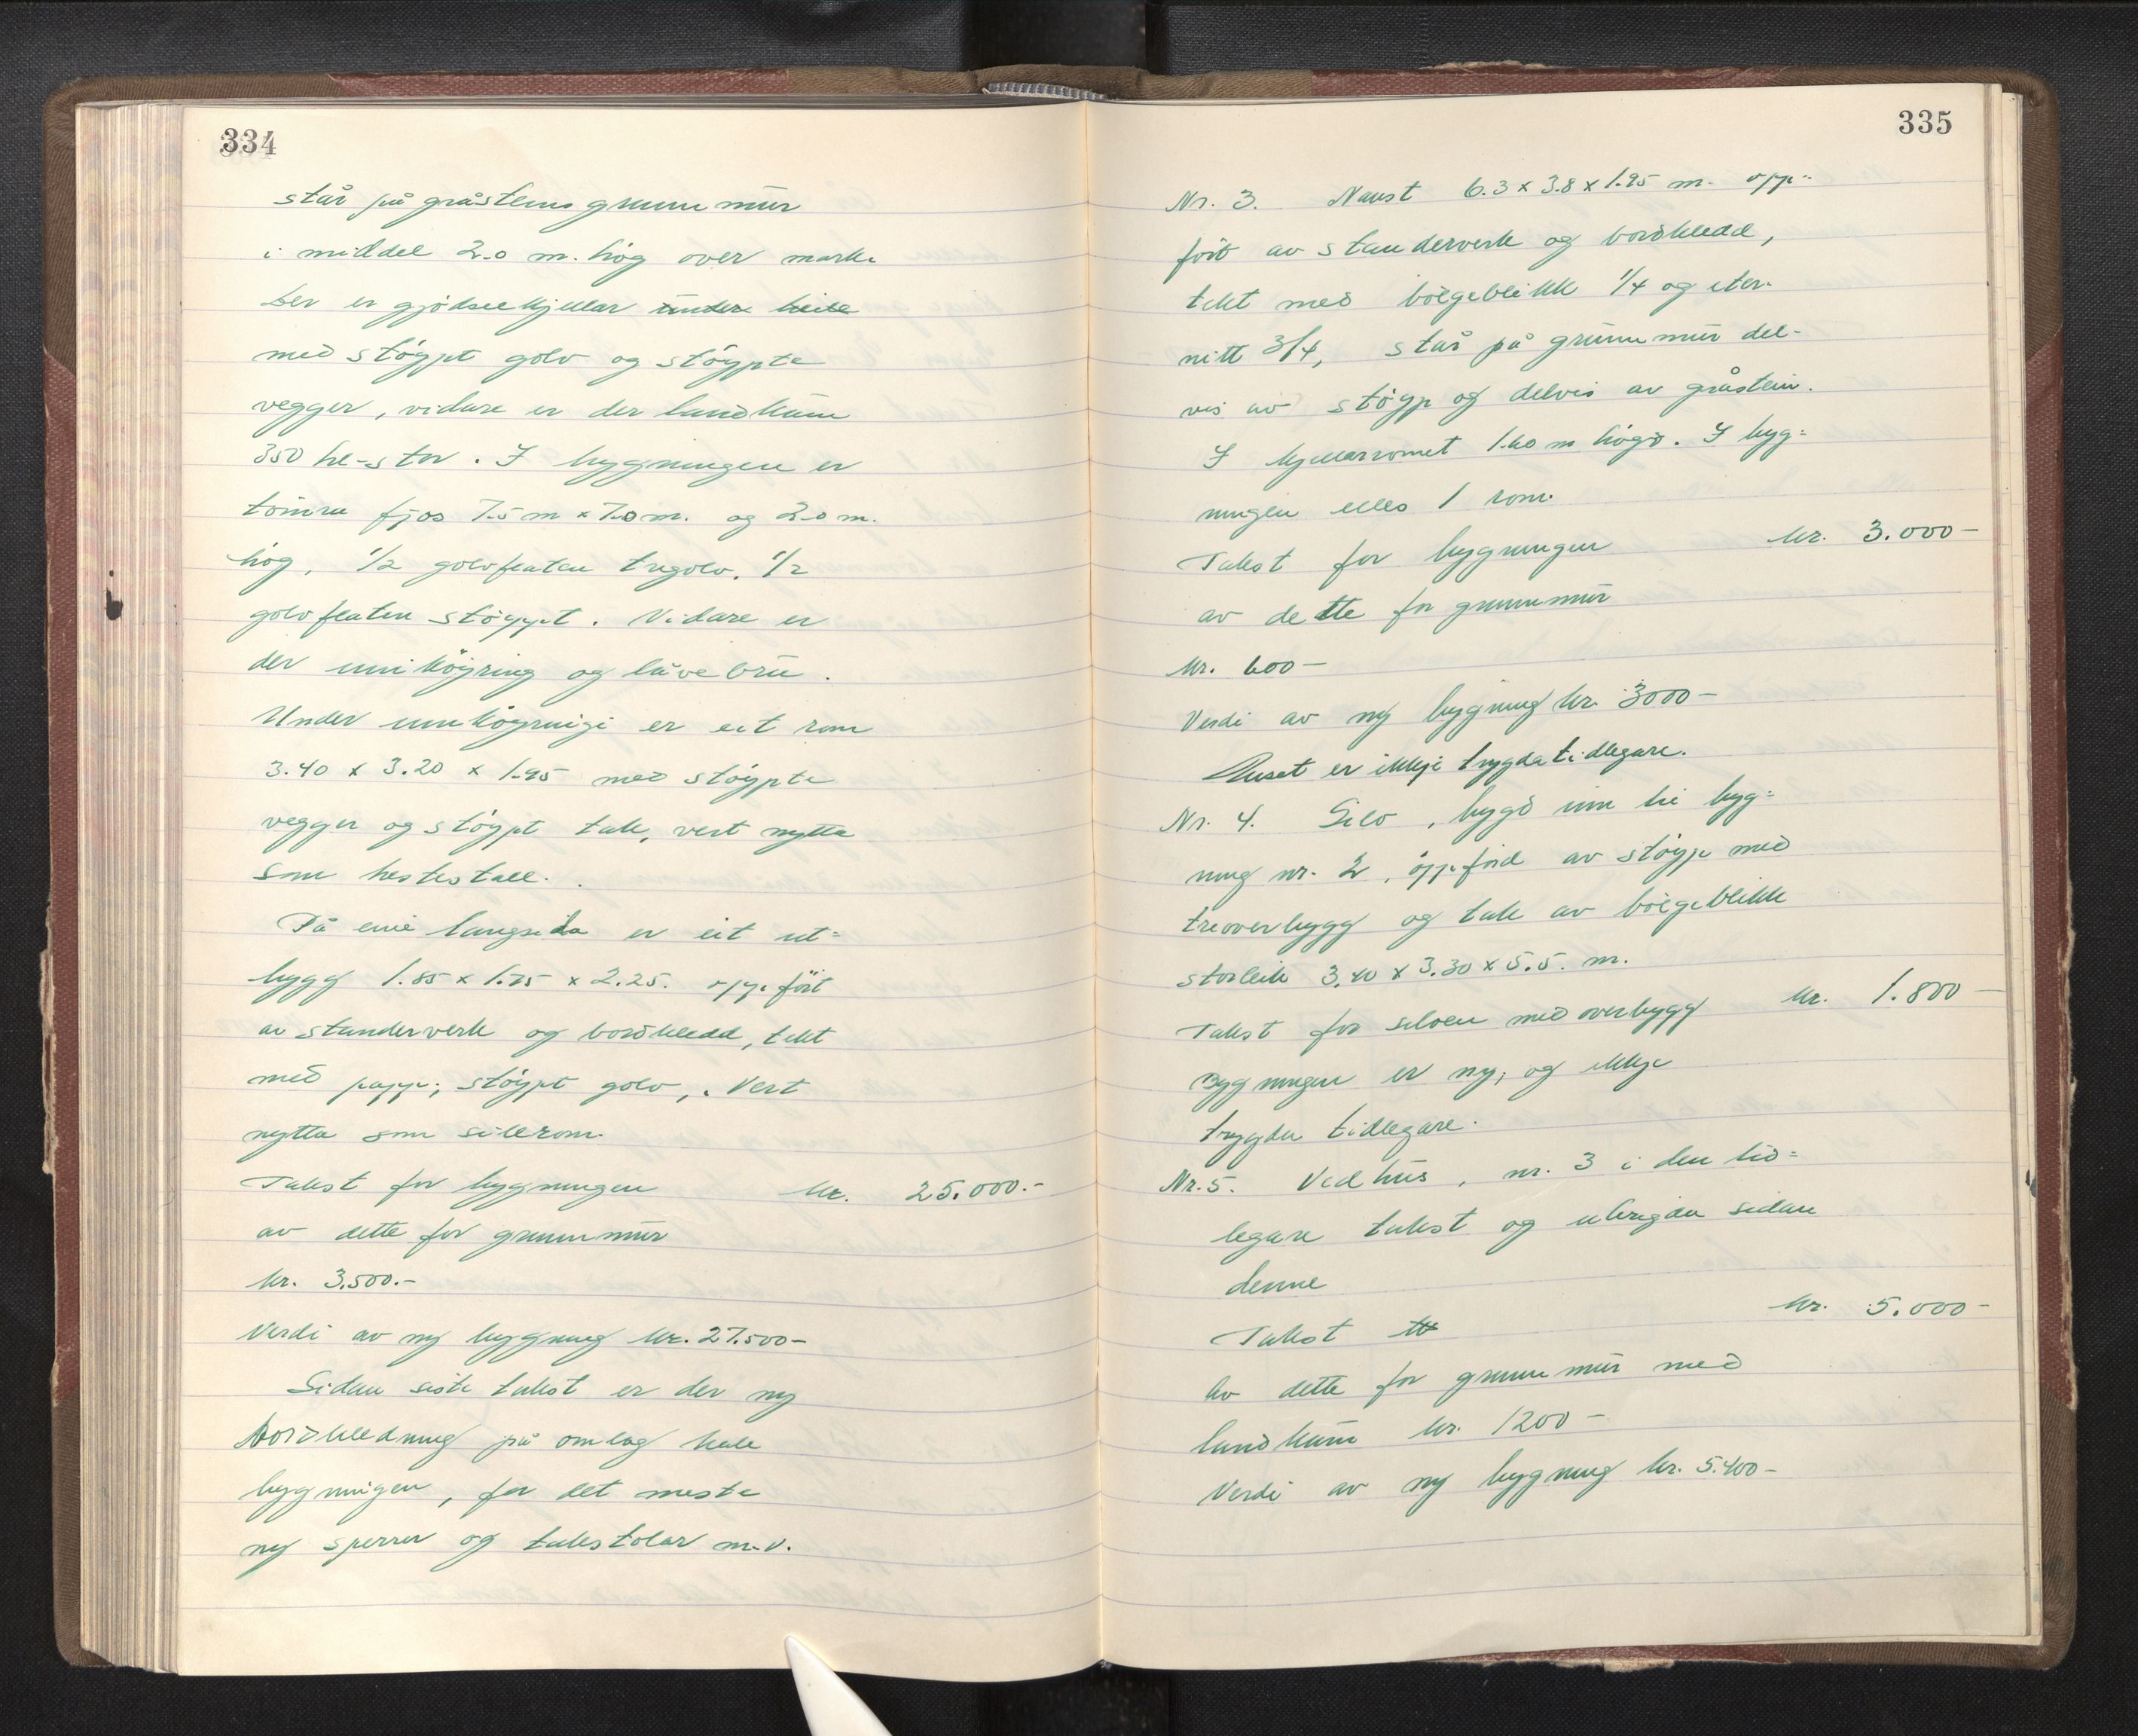 334
står på gråsteins grunnmur
i middel 2.0 m. høg over marka
Der er gjødselkjellar under heile
med støypt golv og støypte
vegger, vidare er der landkum
350 hl-stor. I bygningen er
tømra fjøs 7.5 m x 7.0 m. og 2.0 m.
høg, 1/2 golvflaten tregolv, 1/2
golvflaten støypt. Vidare er
der innkøyring og låvebru.
Under innkøyringi er eit rom
3.40 x 3.20 x 1.95 med støypte
vegger og støypt tak, vert nytta
som hestestall.
På eine langsida er eit ut=
bygg 1.85 x 1.75 x 2.25. oppført
av standerverk og bordkledd, tekt
med papp; støypt golv,. Vert
nytta som silerom.
Takst for bygningen kr. 25.000.-
av dette for grunnmur
kr. 3.500.-
Verdi av ny bygning kr. 27.500-
Sidan siste takst er der ny
bordkledning på omlag heile
bygningen, for det meste
ny sperrer og takstolar m.v.
335
Nr. 3. Naust 6.3 x 3.8 x 1.95 m. opp-
ført av standerverk og bordkledd,
tekt med bølgeblikk 1/4 og eter-
nitt 3/4, står på grunnmur del-
vis av støyp og delvis av gråstein.
I kjellarromet 1.60 m høgd. I byg=
ningen elles 1 rom.
Takst for bygningen kr. 3.000-
av dette for grunnmur
kr. 600-
Verdi av ny bygning kr. 3000-
Huset er ikkje trygda tidlegare.
Nr. 4. Silo, bygd inn til byg=
ning nr. 2, oppførd av støyp med
treoverbygg og tak av bølgeblikk
storleik 3.40 x 3.30 x 5.5. m.
Takst for siloen med overbygg kr. 1.800-
Bygningen er ny, og ikkje
trygda tidlegare.
Nr. 5. Vedhus, nr. 3 i den tid=
legare takst og ubrigda sidan
denne
Takst kr. 5.000-
Av dette for grunnmur med
landkum kr. 1200-
Verdi av ny bygning kr. 5.400-